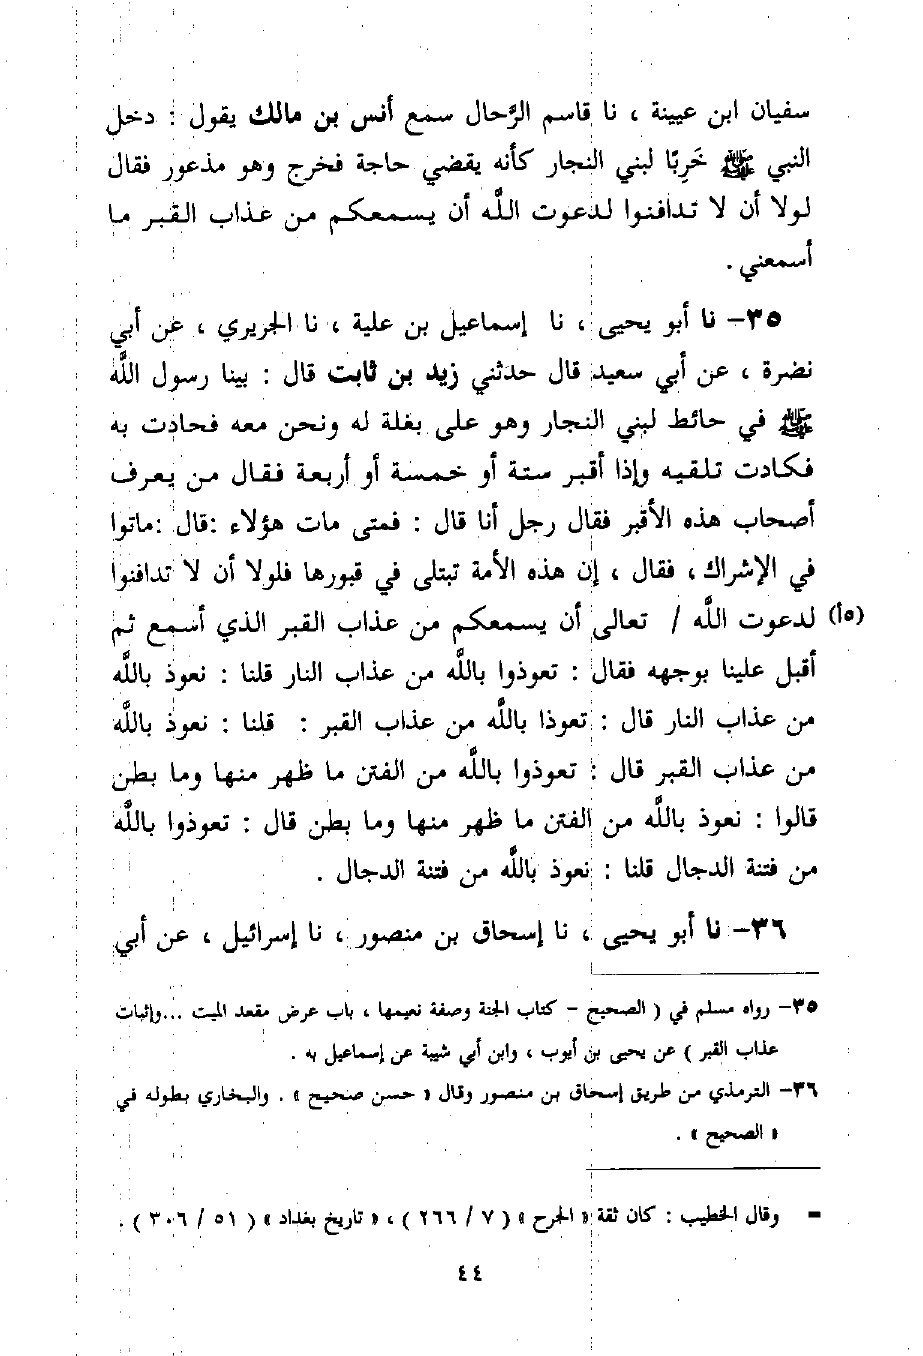 سفيان ابن عيينة ، نا قاسم الرَّحال سمع أنس بن مالك يقول : دخل
النبي ﷺ خَرِبًا لبني النجار كأنه يقضي حاجة فخرج وهو مذعور فقال
لولا أن لا تدافنوا لدعوت اللَّه أن يسمعكم من عذاب القبر ما
أسمعني .
٣٥- نا أبو يحيى ، نا إسماعيل بن علية ، نا الجريري ، عن أبي
نضرة ، عن أبي سعيد قال حدثني زيد بن ثابت قال : بينا رسول اللَّه
ﷺ في حائط لبني النجار وهو على بغلة له ونحن معه فحادت به
فكادت تلقيه وإذا أقبر ستة أو خمسة أو أربعة فقال من يعرف
أصحاب هذه الأقبر فقال رجل أنا قال : فمتى مات هؤلاء :قال :ماتوا
في الإشراك ، فقال ، إن هذه الأمة تبتلى في قبورها فلولا أن لا تدافنوا
(٥أ) لدعوت اللَّه / تعالى أن يسمعكم من عذاب القبر الذي أسمع ثم
أقبل علينا بوجهه فقال : تعوذوا باللَّه من عذاب النار قلنا : نعوذ باللَّه
من عذاب النار قال : تعوذا باللَّه من عذاب القبر : قلنا : نعوذ باللَّه
من عذاب القبر قال : تعوذوا باللَّه من الفتن ما ظهر منها وما بطن
قالوا : نعوذ باللَّه من الفتن ما ظهر منها وما بطن قال : تعوذوا باللَّه
من فتنة الدجال قلنا : نعوذ باللَّه من فتنة الدجال .
٣٦- نا أبو يحيى ، نا إسحاق بن منصور ، نا إسرائيل ، عن أبي
٣٥- رواه مسلم في ( الصحيح - كتاب الجنة وصفة نعيمها ، باب عرض مقعد الميت ... وإثبات
عذاب القبر ) عن يحيى بن أيوب ، وابن أبي شيبة عن إسماعيل به .
٣٦- الترمذي من طريق إسحاق بن منصور وقال « حسن صحيح » . والبخاري بطوله في
« الصحيح » .
= وقال الخطيب : كان ثقة « الجرح » ( ٧ / ٢٦٦ ) ، « تاريخ بغداد » ( ٥١ / ٣٠٦ ) .
٤٤